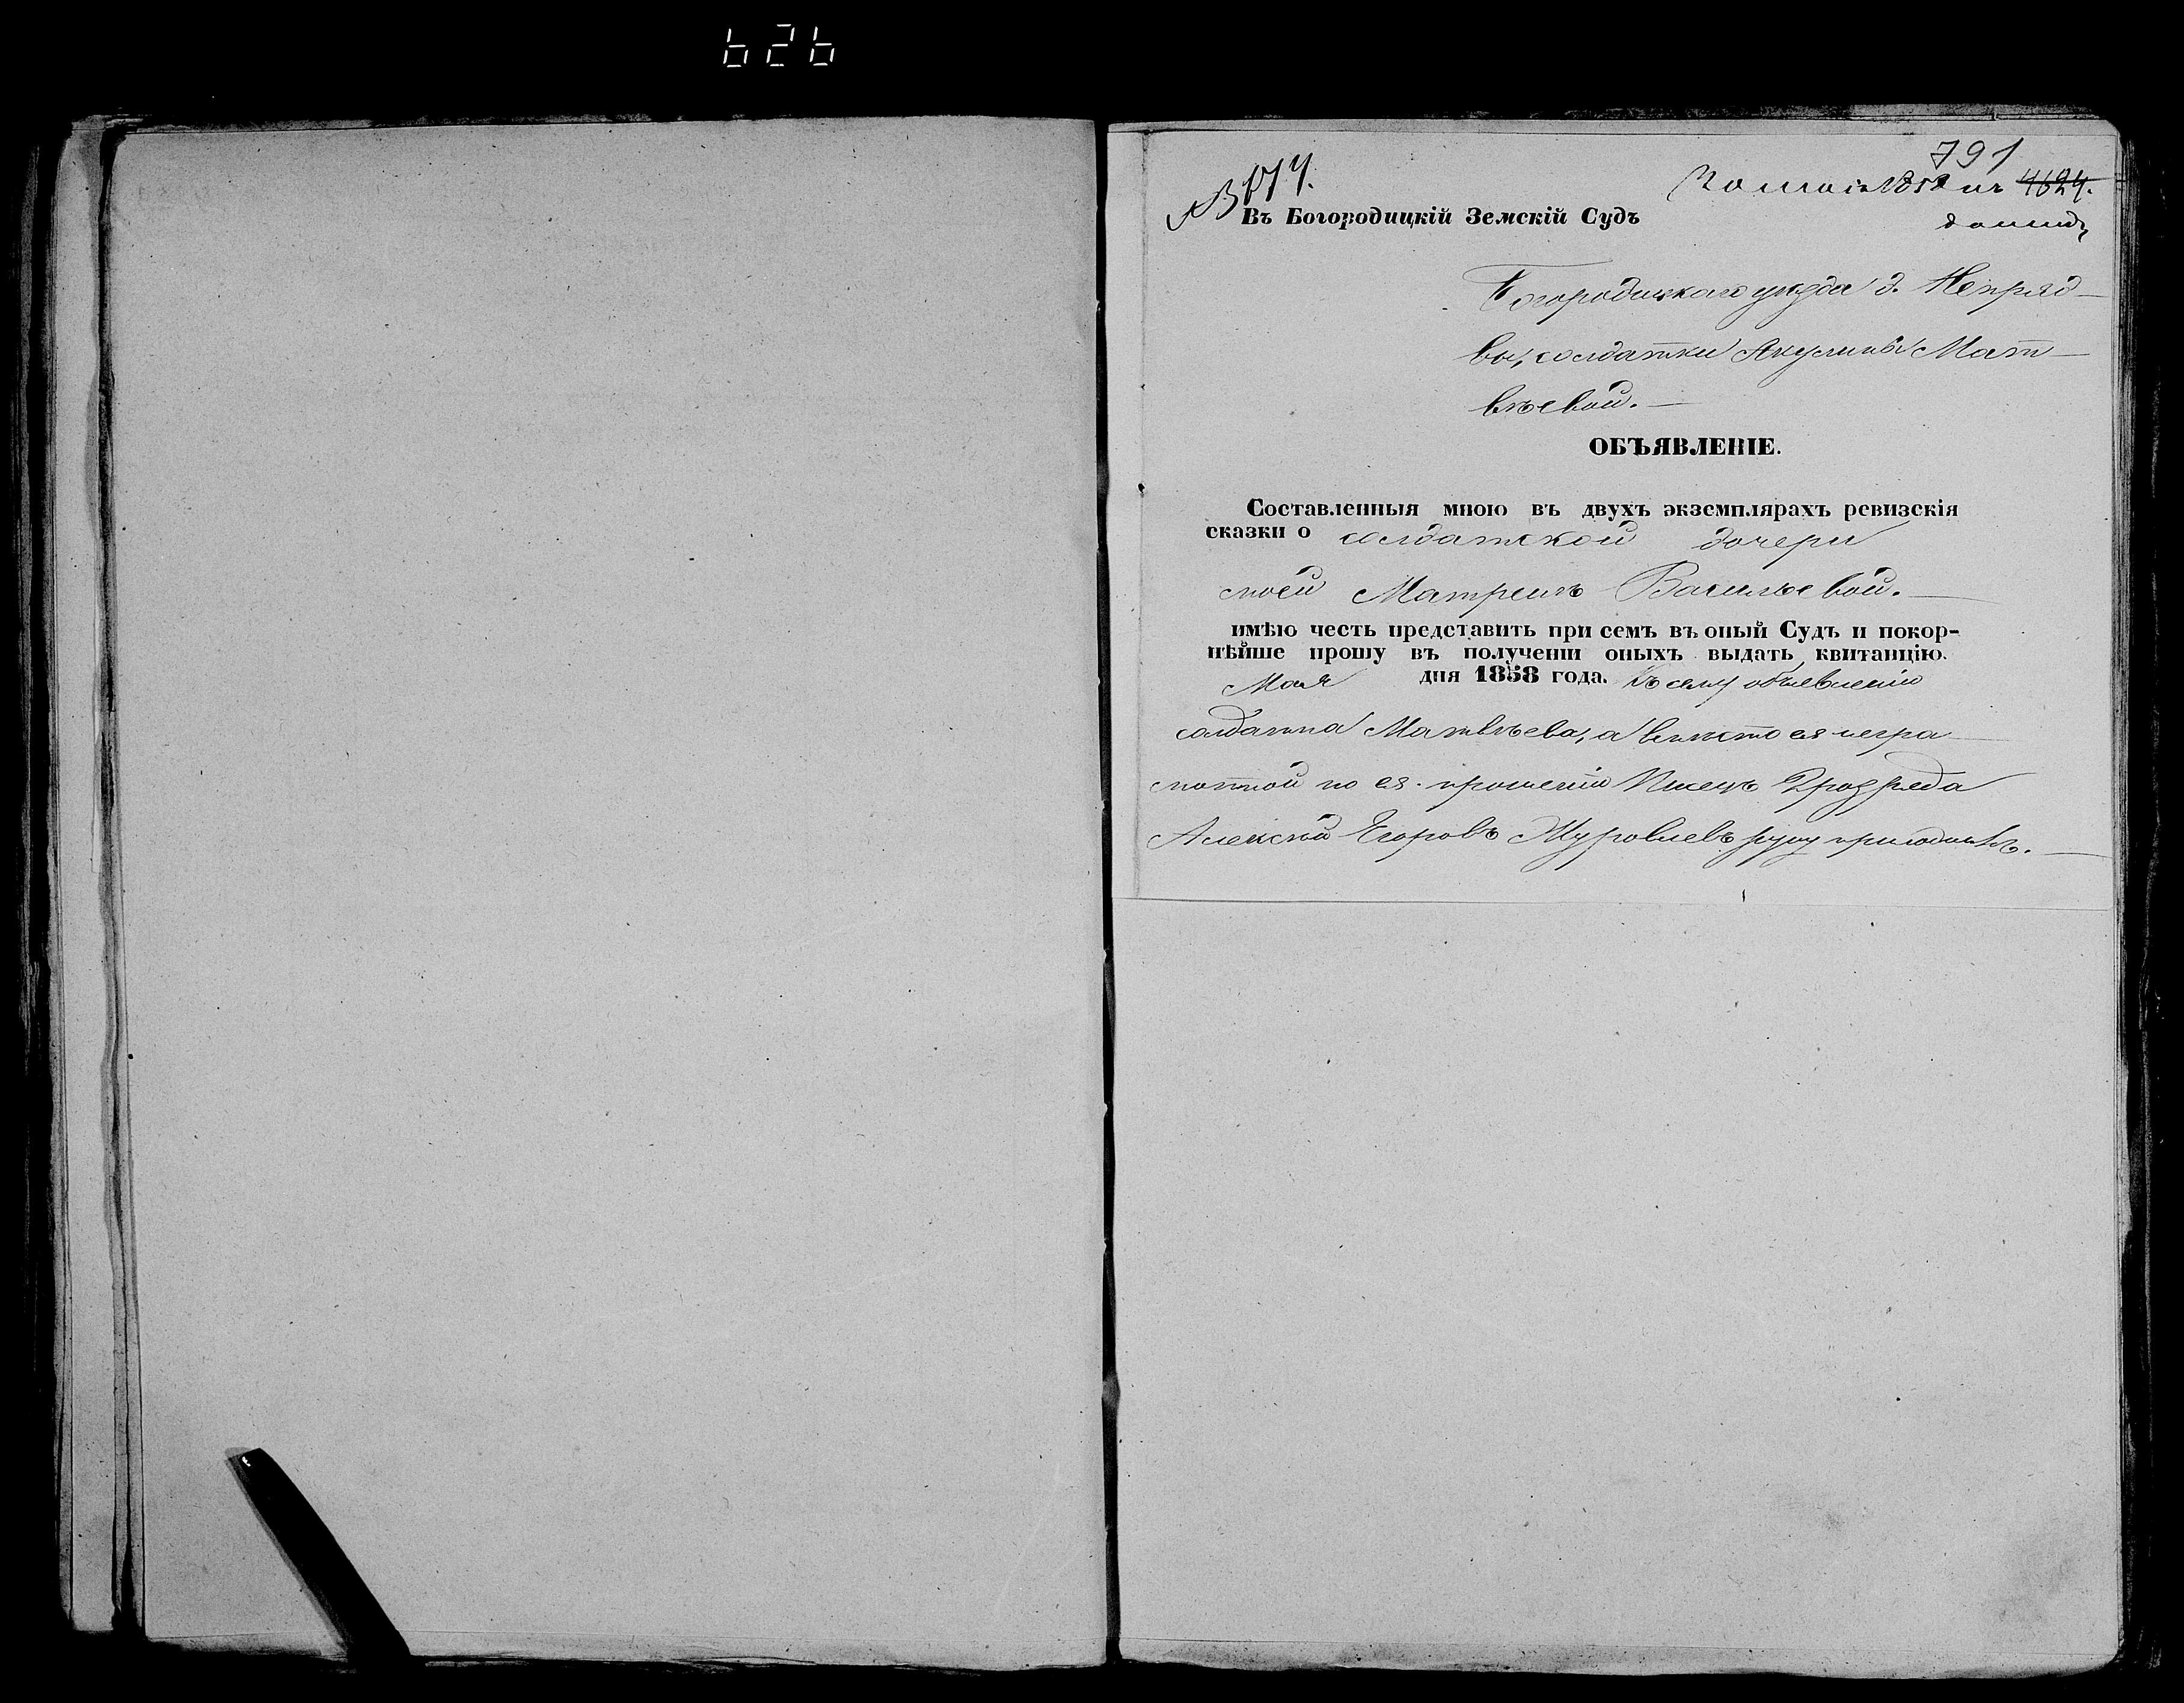 626
791
№ 174.
4624.
Въ Богородицкій Земскій Судъ
Богородицкаго уѣзда д. Непряд-
вы, солдатки Акулины Мат-
вѣевой.
ОБЪЯВЛЕНІЕ.
Составленныя мною въ двухъ экземплярахъ ревизскія
сказки о солдатской дочери
моей Матренѣ Васильевой.
имѣю честь представить при семъ въ оный Судъ и покор-
нѣйше прошу въ полученіи оныхъ выдать квитанцію.
Мая дня 1858 года. Къ сему объявленію
солдатка Матвѣева, а вмѣсто ея негра
мотной по ея прошенію
Алексѣй Егоровъ Журовлевъ руку приложилъ.